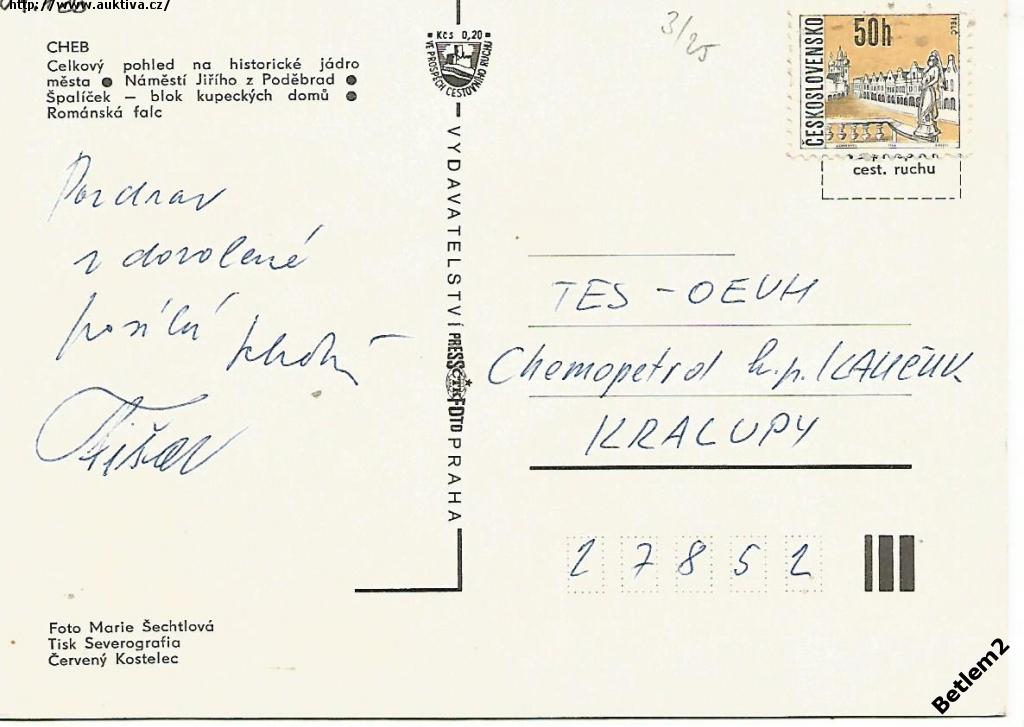 http://www.auktiva.cz/
CHEB
Celkový pohled na historické jádro
města ● Náměstí Jiřího z Poděbrad ●
Špalíček – blok kupeckých domů ●
Románská falc
Kčs 0,20
VE PROSPĚCH CESTOVNÍHO RUCHU
3/25
ČESKOSLOVENSKO
50h
TELČ
cest. ruchu
Pozdrav
z dovolené
posílá
VYDAVATELSTVÍ PRESSFOTO PRAHA
ČTK
TES - OEVH
Chemopetrol k.p. KAUČUK
KRALUPY
27852
Foto Marie Šechtlová
Tisk Severografia
Červený Kostelec
Betlem2